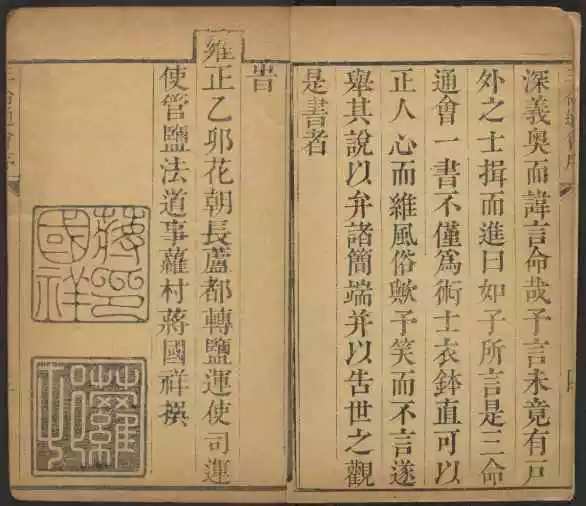 深義奥而諱言命哉予言未竟有戸
外之士揖而進曰如子所言是三命
通會一書不僅為術士衣鉢直可以
正人心而維風俗歟予笑而不言遂
舉其說以弁諸簡端并以告世之觀
是書者
旹
雍正乙卯花朝長蘆都轉鹽運使司運
使管鹽法道事蘿村蔣國祥撰
蔣國祥印
蘿村